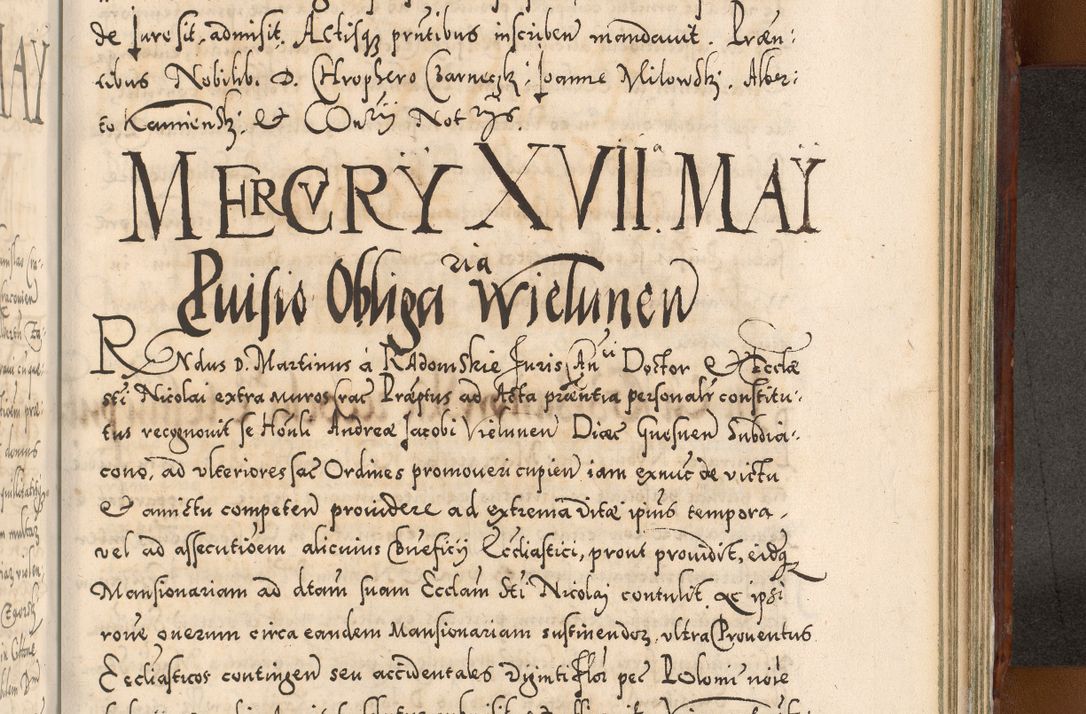 de Jure sit, admisit, Actisq prntibus inscriben mandauit. Præn:
tibus Nobilib. D. Chrophero Czarneczk: Joanne Milowsk; Alber:
to Kamiensk; & Con'rij Not'rijs.
MERCVRŸ XVII.a MAŸ
Puisio Obliga'ria Wielunen
RNdus D. Martinus à RAdomskie Juris Can'ci Doctor & Ecclæ
sti Nicolai extra muros Crac Præptus ad Acta præntia personalr constitu-
tus recognouit se Honli Andreæ Jacobi Vielunen Diæc Gnesnen Subdia-
cono, ad vlteriores sac Ordines promoueri cupien iam exnuc de victu
& amictu competen prouidere ad extrema vitæ ipius tempora,
vel ad assecutioem alicuius Beneficij Eccliastici, prout prouidit, eidq
Mansionariam ad dtam suam Ecclam Sti Nicolaj contulit, ac ipsi
rone onerum circa eandem Mansionariam sustinendoz, vltra Prouentus
Eccliasticos contingen seu accidentales Viginti flor pec Poloni noie